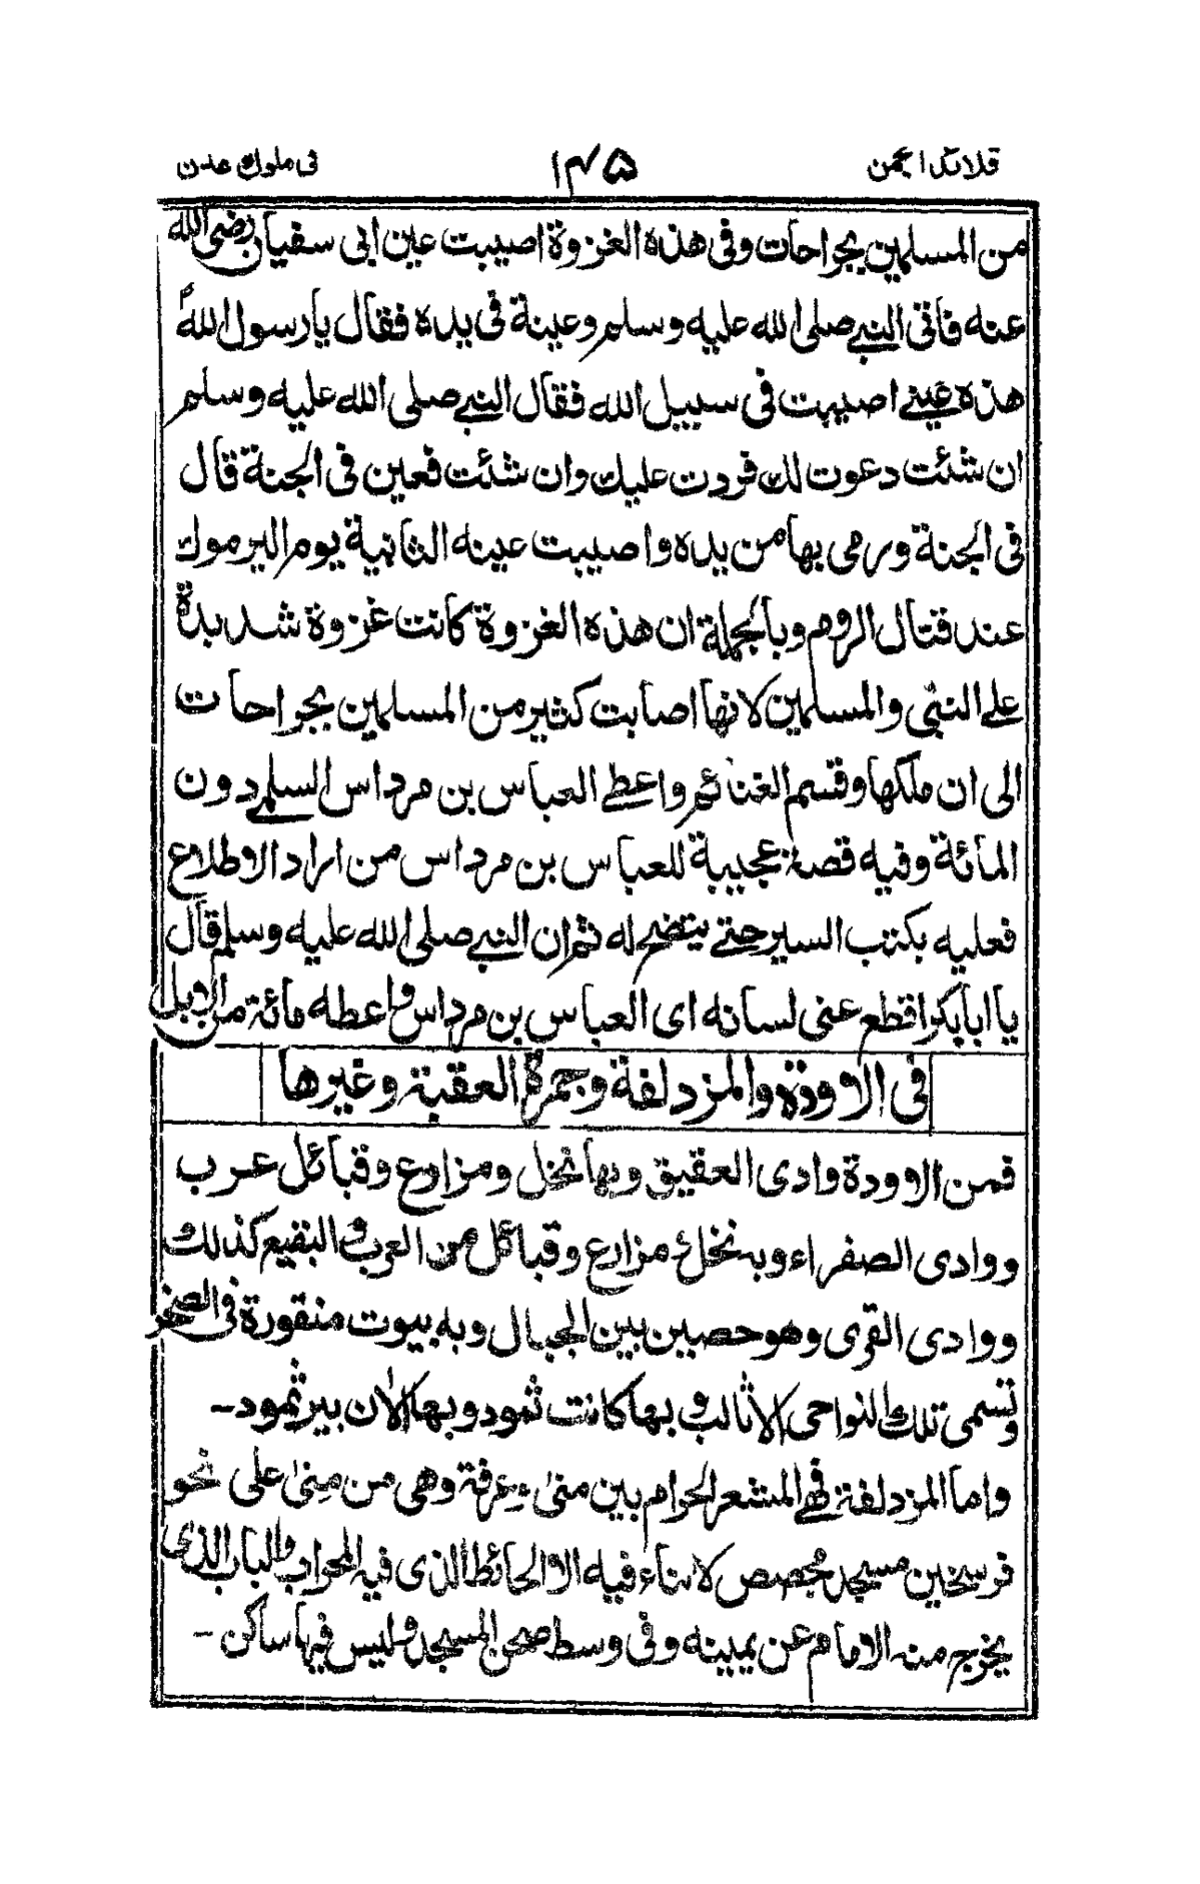 قلائد الجمن ١٤٥ فى ملوك عدن
من المسلمين بجراحات وفى هذه الغزوة اصيبت عين ابى سفيان رضى الله
عنه فاتى النبي صلى الله عليه وسلم وعينة فى يده فقال يا رسول الله
هذه عيني اصيبت فى سبيل الله فقال النبي صلى الله عليه وسلم
ان شئت دعوت لك فردت عليك وان شئت فعين فى الجنة قال
فى الجنة ورمى بها من يده واصيبت عينه الثانية يوم اليرموك
عند قتال الروم وبالجملة ان هذه الغزوة كانت غزوة شديدة
على النبى والمسلمين لانها اصابت كثير من المسلمين بجراحات
الى ان ملكها وقسم الغنائم واعطى العباس بن مرداس السلمي دون
المائة وفيه قصة عجيبة للعباس بن مرداس من اراد الاطلاع
فعليه بكتب السير حتى يتضح له ثم ان النبي صلى الله عليه وسلم قال
يا ابابكر اقطع عنى لسانه اى العباس بن مرداس واعطه مائة من الابل
فى الاودة والمزدلفة وجمرة العقبة وغيرها
فمن الاودة وادى العقيق وبها نخل ومزارع وقبائل عرب
ووادى الصفراء وبه نخل ومزارع وقبائل من العرب والبقيع كذلك
ووادى القرى وهو حصين بين الجبال وبه بيوت منقورة فى الصخر
وتسمى تلك النواحى الاثالب وبها كانت ثمود وبها الان بير ثمود-
واما المزدلفة فهي المشعر الحرام بين منى وعرفة وهى من منى على نحو
فرسخين مسجد مجصص لا بناء فيه الا الحائط الذى فيه المحراب والباب الذى
يخرج منه الامام عن يمينه وفى وسط صحن المسجد وليس فيها ساكن -